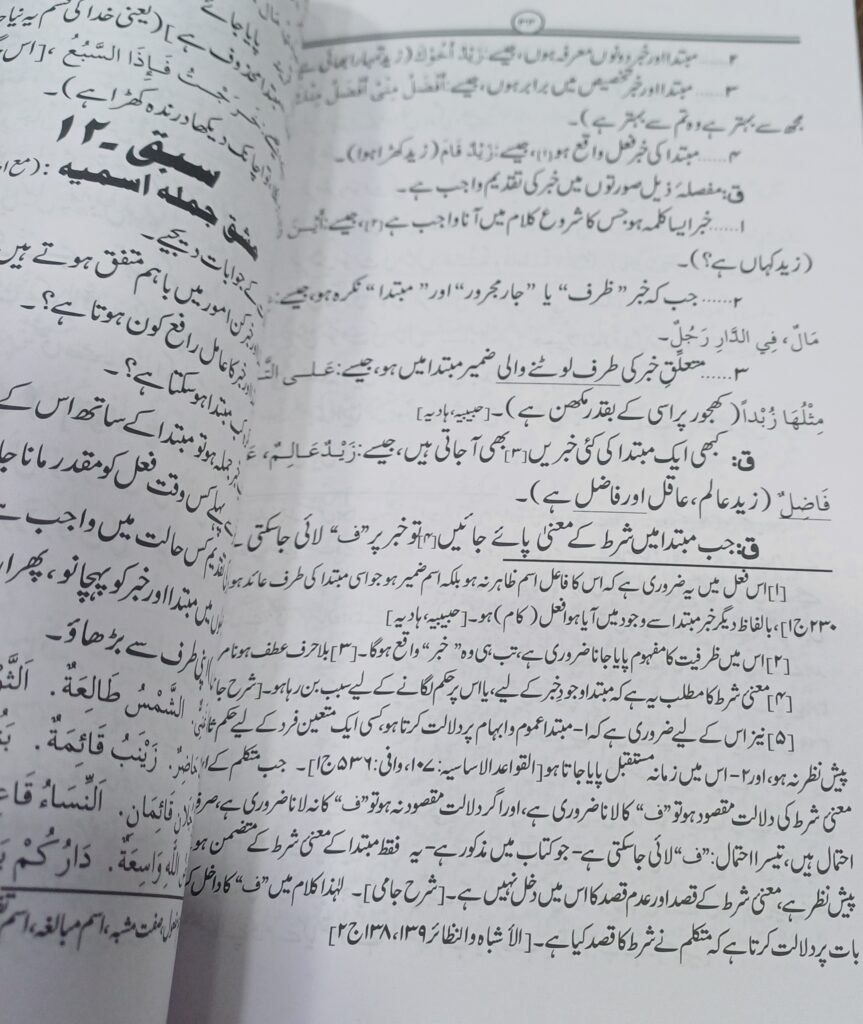 ۲...... مبتدا اور خبر دونوں معرفہ ہوں، جیسے: زَيْدٌ أَخُوْكَ (زید تمہارا بھائی ہے
۳...... مبتدا اور خبر تخصیص میں برابر ہوں، جیسے: أَفْضَلُ مِنِّيْ أَفْضَلُ مِنْكَ
مجھ سے بہتر ہے وہ تم سے بہتر ہے)۔
۴...... مبتدا کی خبر فعل واقع ہو[۱]، جیسے: زَيْدٌ قَامَ (زید کھڑا ہوا)۔
ق: مفصلۂ ذیل صورتوں میں خبر کی تقدیم واجب ہے۔
۱...... خبر ایسا کلمہ ہو جس کا شروع کلام میں آنا واجب ہے[۲]، جیسے: أَيْنَ
(زید کہاں ہے؟)۔
۲...... جب کہ خبر ”ظرف“ یا ”جار مجرور“ اور ”مبتدا“ نکرہ ہو، جیسے:
مَالٌ، فِي الدَّارِ رَجُلٌ۔
۳...... متعلقِ خبر کی طرف لوٹنے والی ضمیر مبتدا میں ہو، جیسے: عَلَى
مِثْلُهَا زُبْداً (کھجور پر اسی کے بقدر مکھن ہے)۔ [حبیبیہ، ہادیہ]
ق: کبھی ایک مبتدا کی کئی خبریں[۳] بھی آجاتی ہیں، جیسے: زَيْدٌ عَالِمٌ،
فَاضِلٌ (زید عالم، عاقل اور فاضل ہے)۔
ق: جب مبتدا میں شرط کے معنیٰ پائے جائیں[۴] تو خبر پر ”ف“ لائی جاسکتی
[۱] اس فعل میں یہ ضروری ہے کہ اس کا فاعل اسم ظاہر نہ ہو بلکہ اسم ضمیر ہو جو اسی مبتدا کی طرف عائد ہو
۲۳۰ ج۱]، بالفاظ دیگر خبر مبتدا سے وجود میں آیا ہوا فعل (کام) ہو۔ [حبیبیہ، ہادیہ]
[۲] اس میں ظرفیت کا مفہوم پایا جانا ضروری ہے، تب ہی وہ ”خبر“ واقع ہوگا۔ [۳] بلا حرف عطف ہونا
[۴] معنیٔ شرط کا مطلب یہ ہے کہ مبتدا وجودِ خبر کے لیے، یا اس پر حکم لگانے کے لیے سبب بن رہا ہو۔ [شرح
[۵] نیز اس کے لیے ضروری ہے کہ ۱- مبتدا عموم و ابہام پر دلالت کرتا ہو، کسی ایک متعین فرد کے لیے حکم
پیش نظر نہ ہو، اور ۲- اس میں زمانہ مستقبل پایا جاتا ہو [القواعد الاساسیہ: ۱۰۷، وافی: ۵۳۶ ج۱]۔ جب متکلم کے
معنیٔ شرط کی دلالت مقصود ہو تو ”ف“ کا لانا ضروری ہے، اور اگر دلالت مقصود نہ ہو تو ”ف“ کا نہ لانا ضروری ہے، صرف
احتمال ہیں، تیسرا احتمال: ”ف“ لائی جاسکتی ہے- جو کتاب میں مذکور ہے- یہ فقط مبتدا کے معنیٔ شرط کے متضمن ہو
پیش نظر ہے، معنیٔ شرط کے قصد اور عدم قصد کا اس میں دخل نہیں ہے۔ [شرح جامی]۔ لہٰذا کلام میں ”ف“ کا داخل
بات پر دلالت کرتا ہے کہ متکلم نے شرط کا قصد کیا ہے۔ [الأشباہ والنظائر ۱۳۸،۱۳۹ ج۲]
پایا جائے
مبتدا محذوف ہے] (یعنی خدا کی قسم یہ نیا
خَرَجْتُ فَإِذَا السَّبُعُ، [اس
اچانک دیکھا درندہ کھڑا ہے)۔
سبق - ۱۲
مشق جملہ اسمیہ: (مع
کے جوابات دیجیے۔
خبر کن امور میں باہم متفق ہوتے ہیں
خبر کا عامل رافع کون ہوتا ہے؟۔
مبتدا ہو سکتا ہے؟۔
جملہ ہو تو مبتدا کے ساتھ اس کے
پہلے کس وقت فعل کو مقدر مانا
تقدیم کس حالت میں واجب
میں مبتدا اور خبر کو پہچانو، پھر
طرف سے بڑھاؤ۔
الشَّمْسُ طَالِعَةٌ.
حَاضِرٌ. زَيْنَبُ قَائِمَةٌ.
قَائِمَانِ. اَلنِّسَاءُ
اللّٰهِ وَاسِعَةٌ. دَارُكُمْ
صفت مشبہ، اسم مبالغہ، اسم